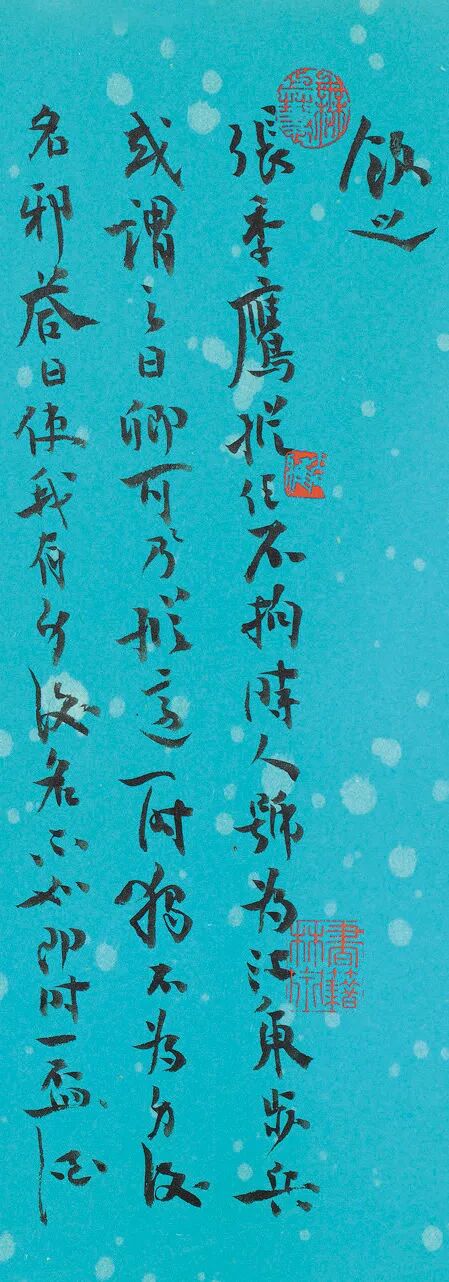 張季鷹縱任不拘時人號為江東步兵
或謂之曰卿可乃縱適一時獨不為身後
名邪答曰使我有身後名不如即時一盃酒